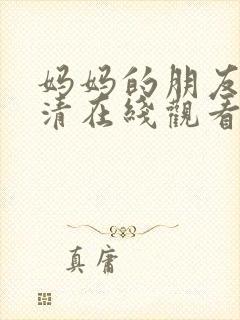 妈妈的朋友
清在綫觀看
真庸